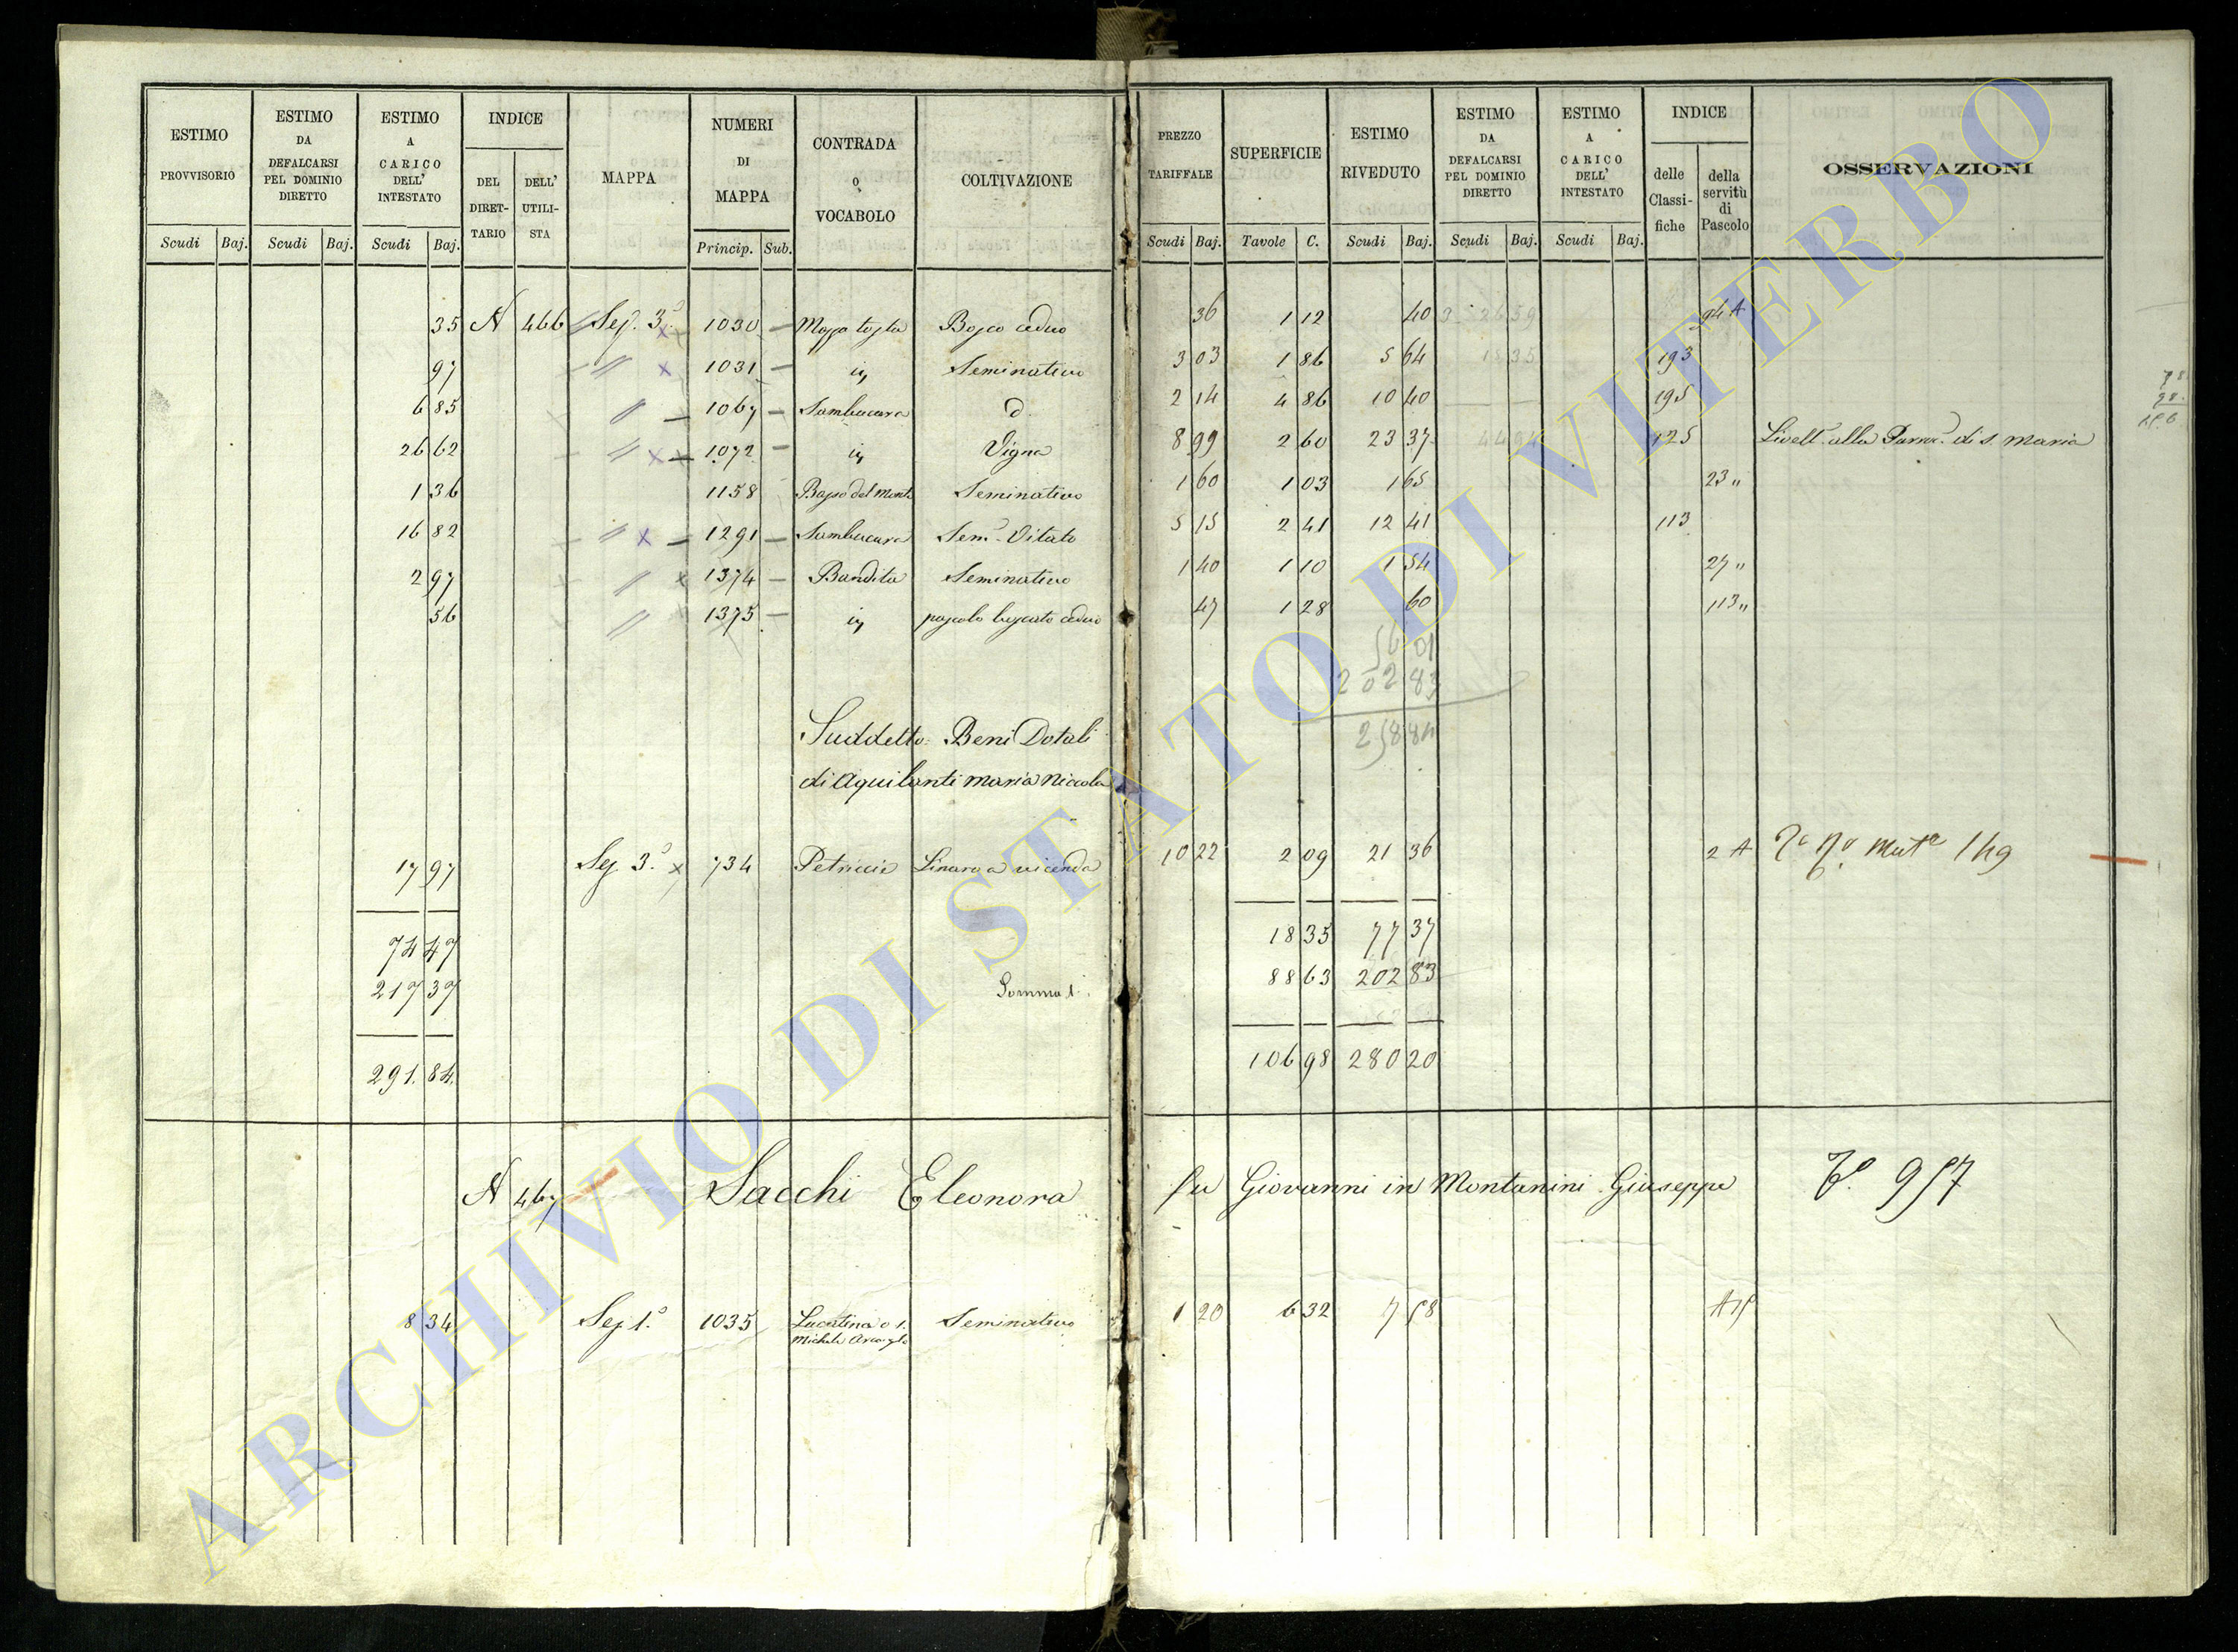 ESTIMO PROVVISORIO
ESTIMO DA DEFALCARSI PEL DOMINIO DIRETTO
ESTIMO A CARICO DELL' INTESTATO
INDICE
DEL DIRET-TARIO
DELL' UTILI-STA
MAPPA
NUMERI DI MAPPA
CONTRADA O VOCABOLO
COLTIVAZIONE
PREZZO TARIFFALE
SUPERFICIE
ESTIMO RIVEDUTO
ESTIMO DA DEFALCARSI PEL DOMINIO DIRETTO
ESTIMO A CARICO DELL' INTESTATO
INDICE
delle Classi-fiche
della servitù di Pascolo
OSSERVAZIONI
Scudi Baj. Scudi Baj. Scudi Baj. Princip. Sub. Scudi Baj. Tavole C. Scudi Baj. Scudi Baj. Scudi Baj.
35 N 466 Sez. 3ª 1030 Bosco ceduo 36 1 12 40 94 A
97 " 1031 id Seminativo 3 03 1 86 5 64 193
6 85 " 1067 Sambucara d 2 14 4 86 10 40 195
26 62 " 1072 id Vigna 8 99 2 60 23 37 125 Livell. alla Parroc. di S. Maria
1 36 1158 Seminativo 1 60 1 03 1 65 23 "
16 82 " 1291 Sambucara Sem. Vitato 5 15 2 41 12 41 113
2 97 " 1374 Bandita Seminativo 1 40 1 10 1 54 27 "
56 " 1375 id pascolo boscato ceduo 47 1 28 60 113 "
56 01
202 83
258 84
Suddetto Beni Dotali
di Aquilanti Maria Niccola
17 97 Sez 3ª 734 Petriccie Linaro a vicenda 10 22 2 09 21 36 2 A
74 47 18 35 77 37
217 37 Somma 88 63 202 83
291. 84. 106 98 280 20
N 467 Sacchi Eleonora fu Giovanni in Montanini Giuseppe 957
8 34 Sez 1ª 1035 Seminativo 1 20 6 32 7 58
ARCHIVIO DI STATO DI VITERBO